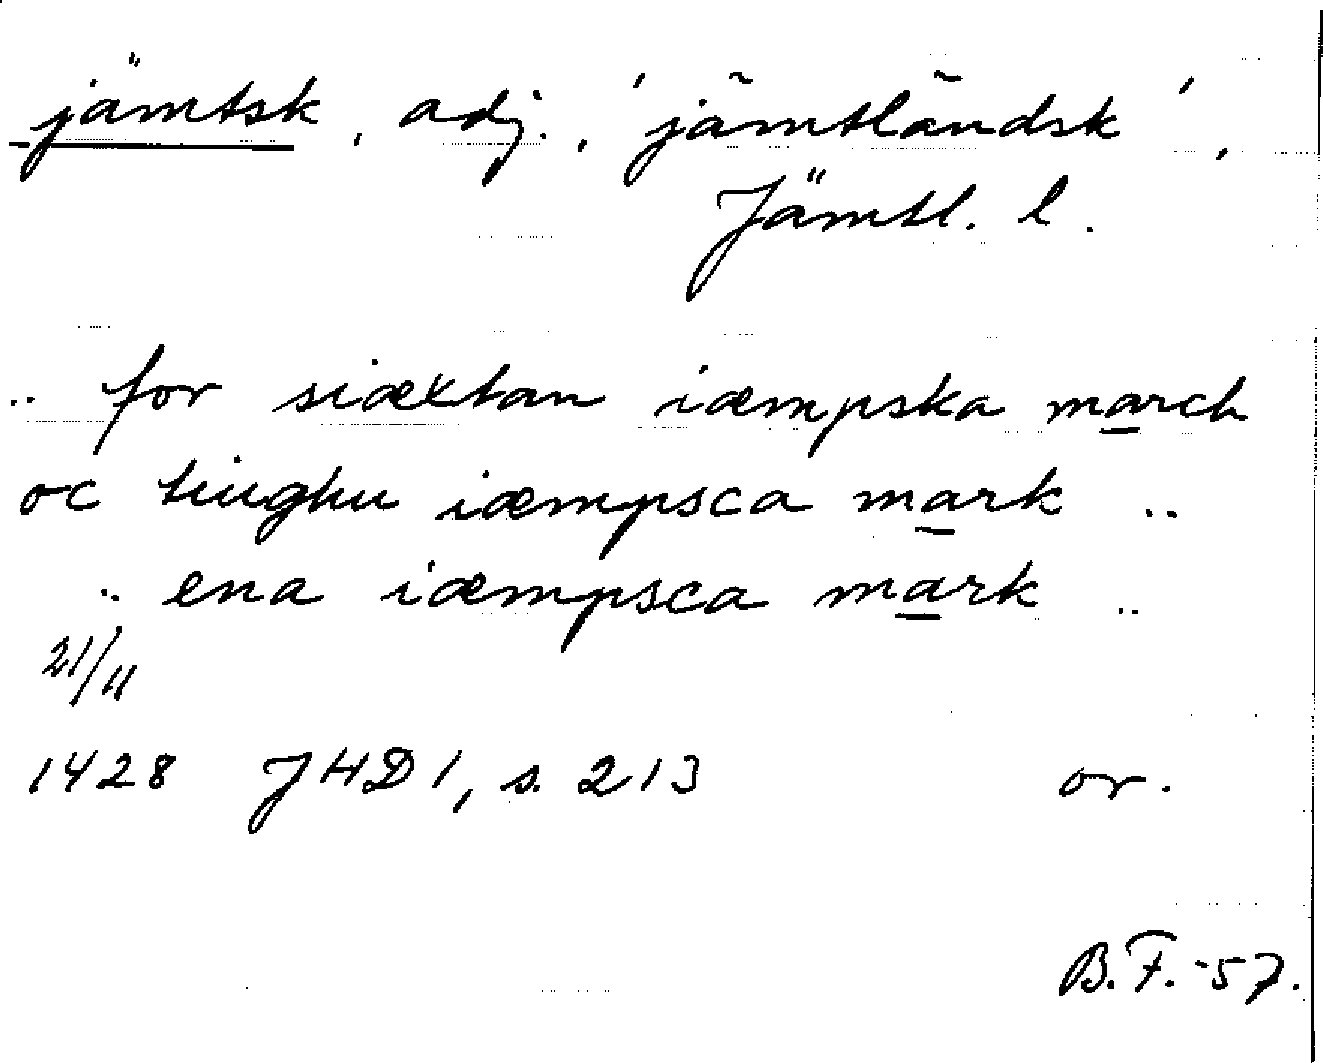 jämtsk, adj., 'jämtländsk',
Jämtl. l.
.. for siæxtan iæmpska march
oc tiughu iæmpsca mark ..
.. ena iæmpsca mark ..
21/11
1428 JHD 1, s. 213 or.
B.F.-57.